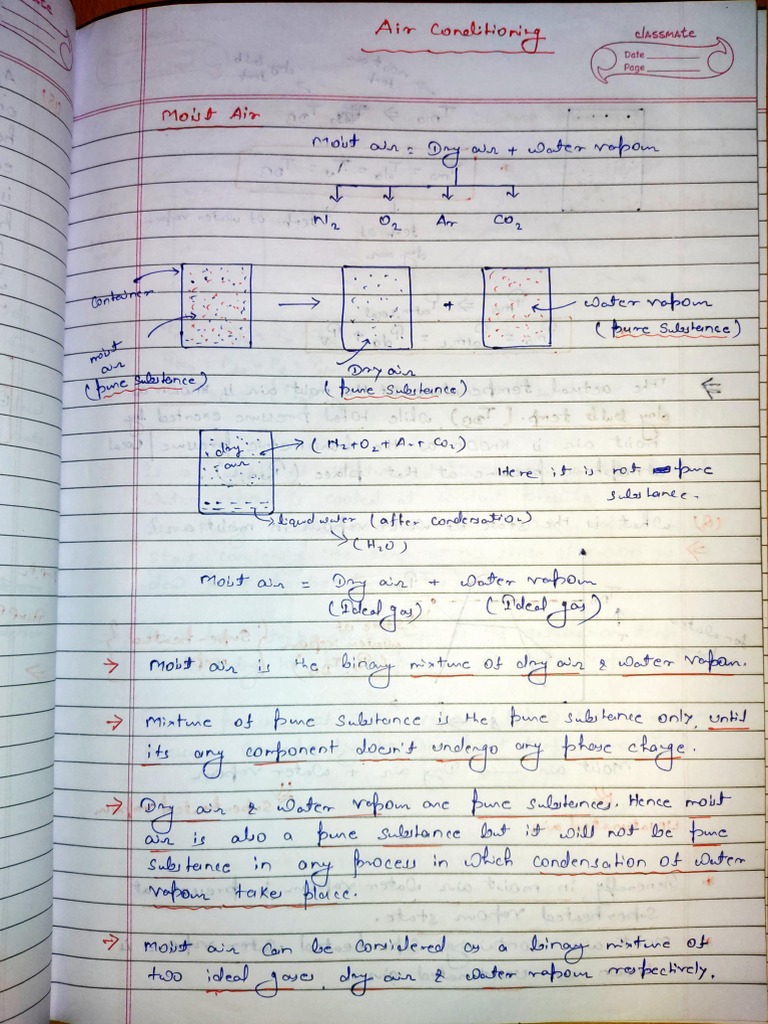 Air Conditioning
classmate
Date
Page
Moist Air
Moist air = Dry air + water vapour
N2 O2 Ar CO2
container
moist
air
(pure substance)
+
Dry air
(pure substance)
water vapour
(pure substance)
dry
air
(N2+O2+Ar+CO2)
Here it is not pure
substance.
liquid water (after condensation)
(H2O)
Moist air = Dry air + water vapour
(Ideal gas) (Ideal gas)
→ Moist air is the binary mixture of dry air & water vapour.
→ Mixture of pure substance is the pure substance only, until
its any component doesn't undergo any phase change.
→ Dry air & water vapour are pure substances. Hence moist
air is also a pure substance but it will not be pure
substance in any process in which condensation of water
vapour takes place.
→ Moist air can be considered as a binary mixture of
two ideal gases, dry air & water vapour respectively.